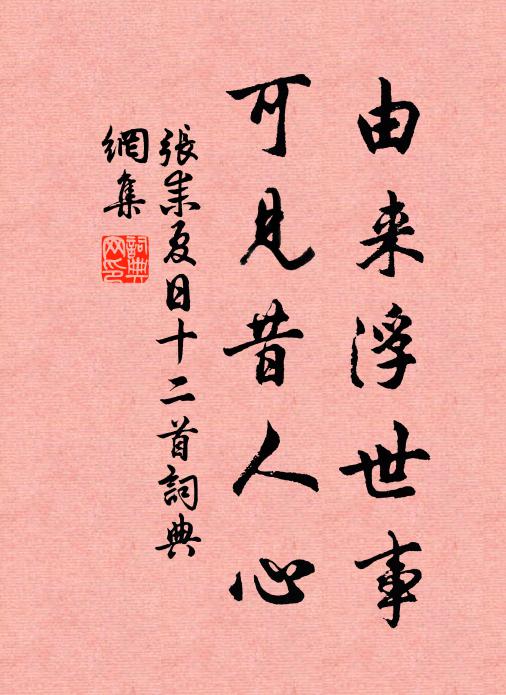 由来浮世事
可見昔人心
張耒夏日十二首詞典
網集
詞典網印